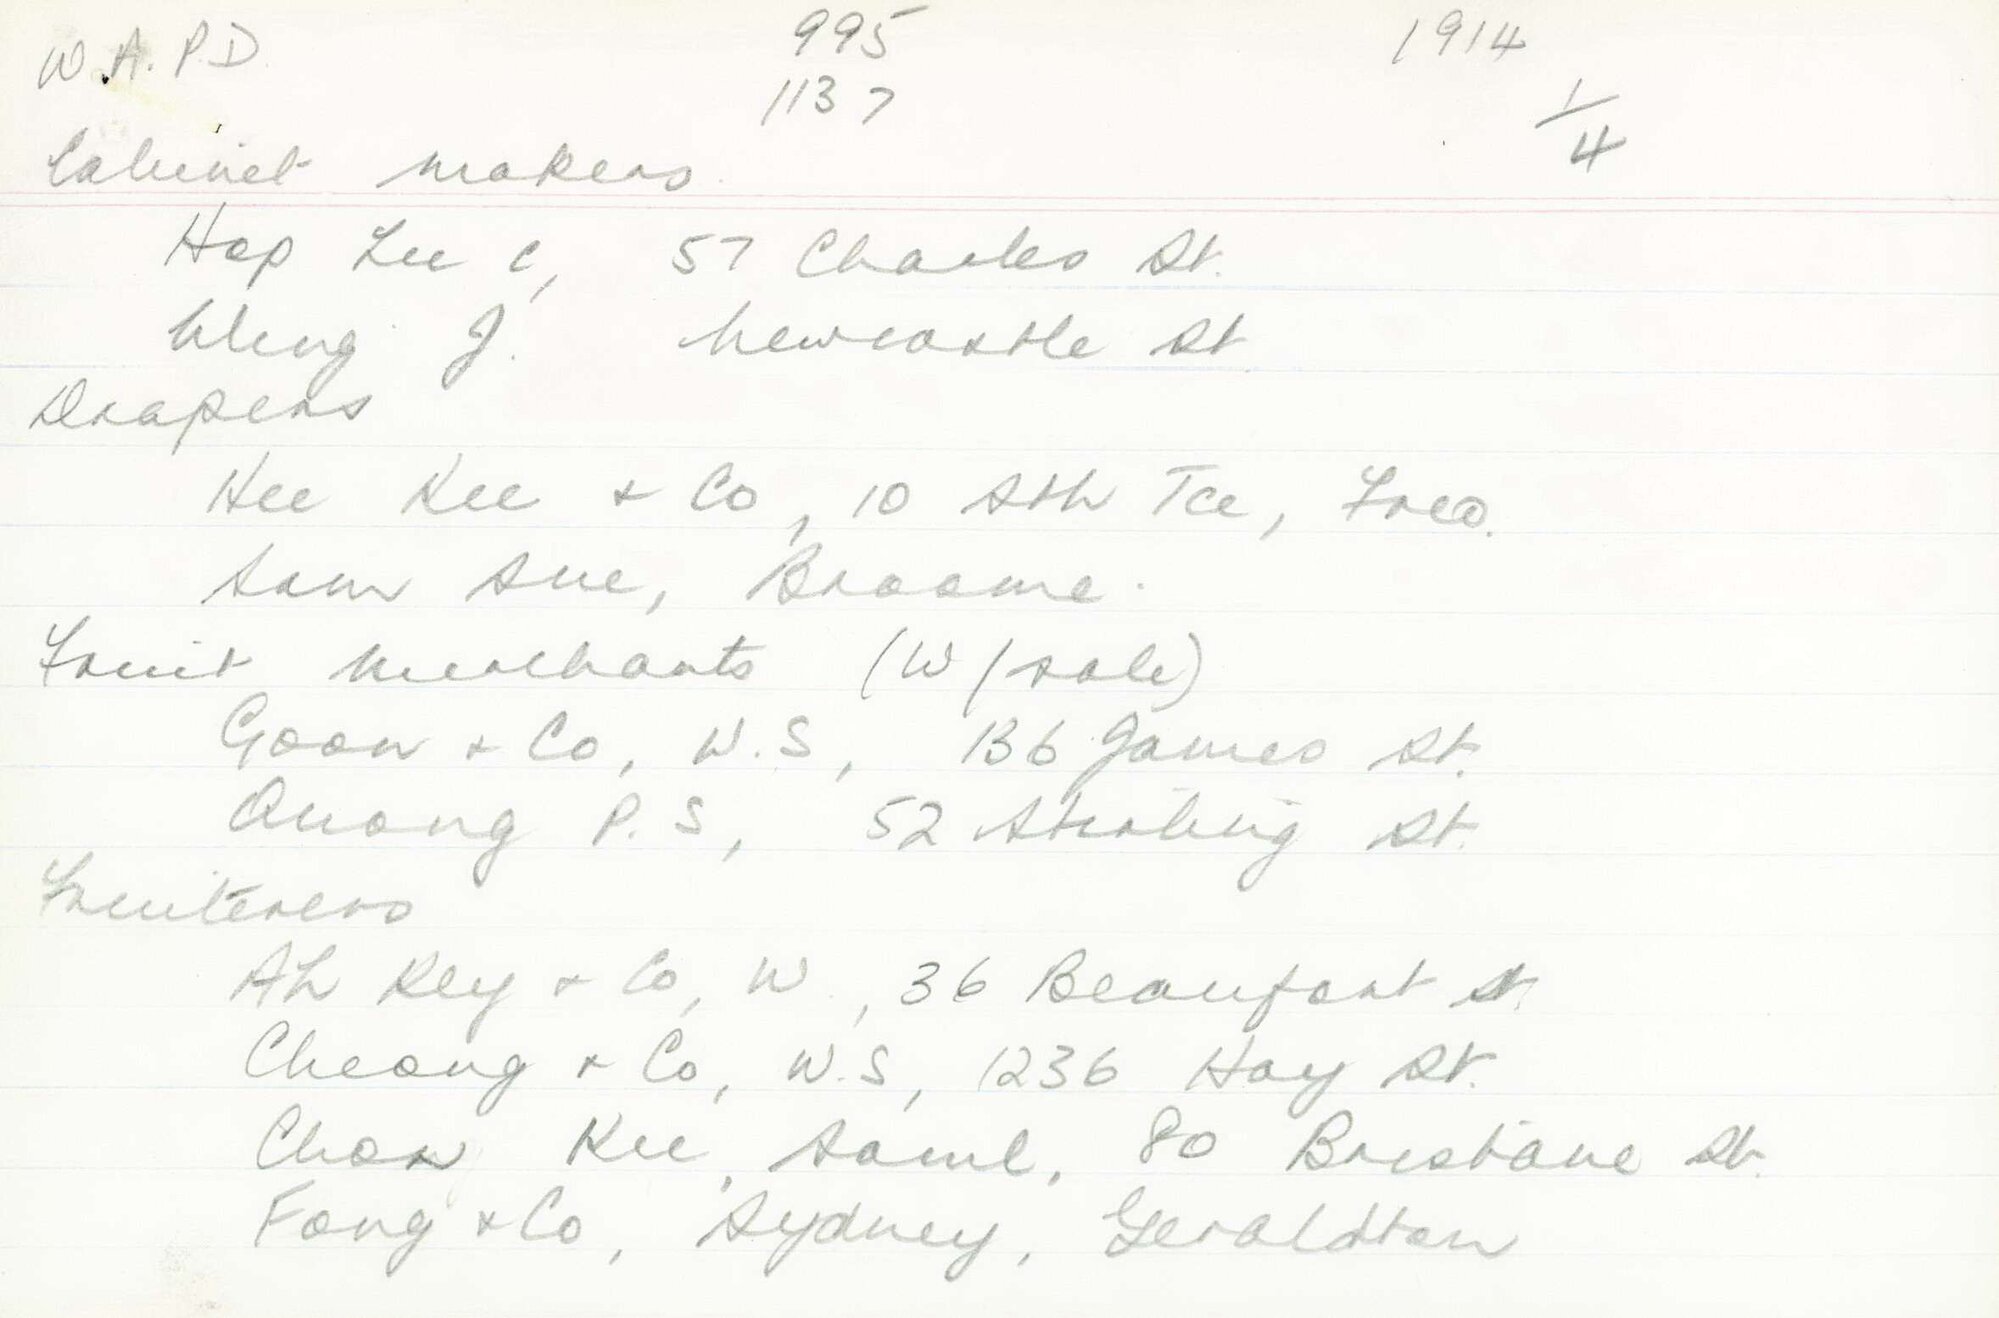 W.A.P.D. 995 1914
1137 1/4
Cabinet makers
Hop Lee C, 57 Charles St.
Wing J. Newcastle St
Drapers
Hee Kee & Co, 10 Sth Tce, Freo.
Sam Sue, Broome.
Fruit merchants (W/sale)
Goon & Co, W.S, 136 James St.
Quong P.S, 52 Stirling St.
Fruiterers
Ah Key & Co, W., 36 Beaufort St
Cheong & Co, W.S, 1236 Hay St.
Chow Kee, Saml, 80 Brisbane St.
Fong & Co, Sydney, Geraldton